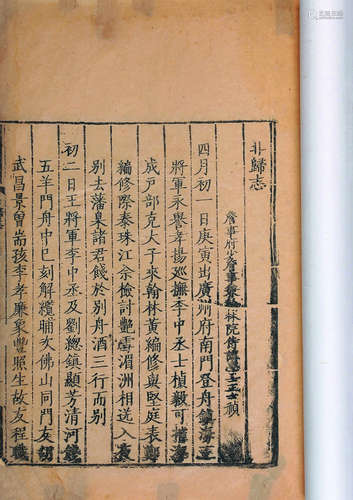 北歸志
詹事府少詹事兼翰林院侍講王士禎
四月初一日庚寅出廣州府南門登舟鎮海王
將軍永譽孝揚巡撫李中丞士楨毅可
成戶部克大子來翰林黃編修與堅庭表鄭
編修際泰珠江佘檢討艷雪湄洲相送入夜
別去藩臬諸君餞於別舟酒三行而別
初二日王將軍李中丞及劉總鎮顯芳清河餞
五羊門舟中巳刻解纜晡次佛山同門友胡
武昌景曾耑孩李孝廉象豐照生故友程職